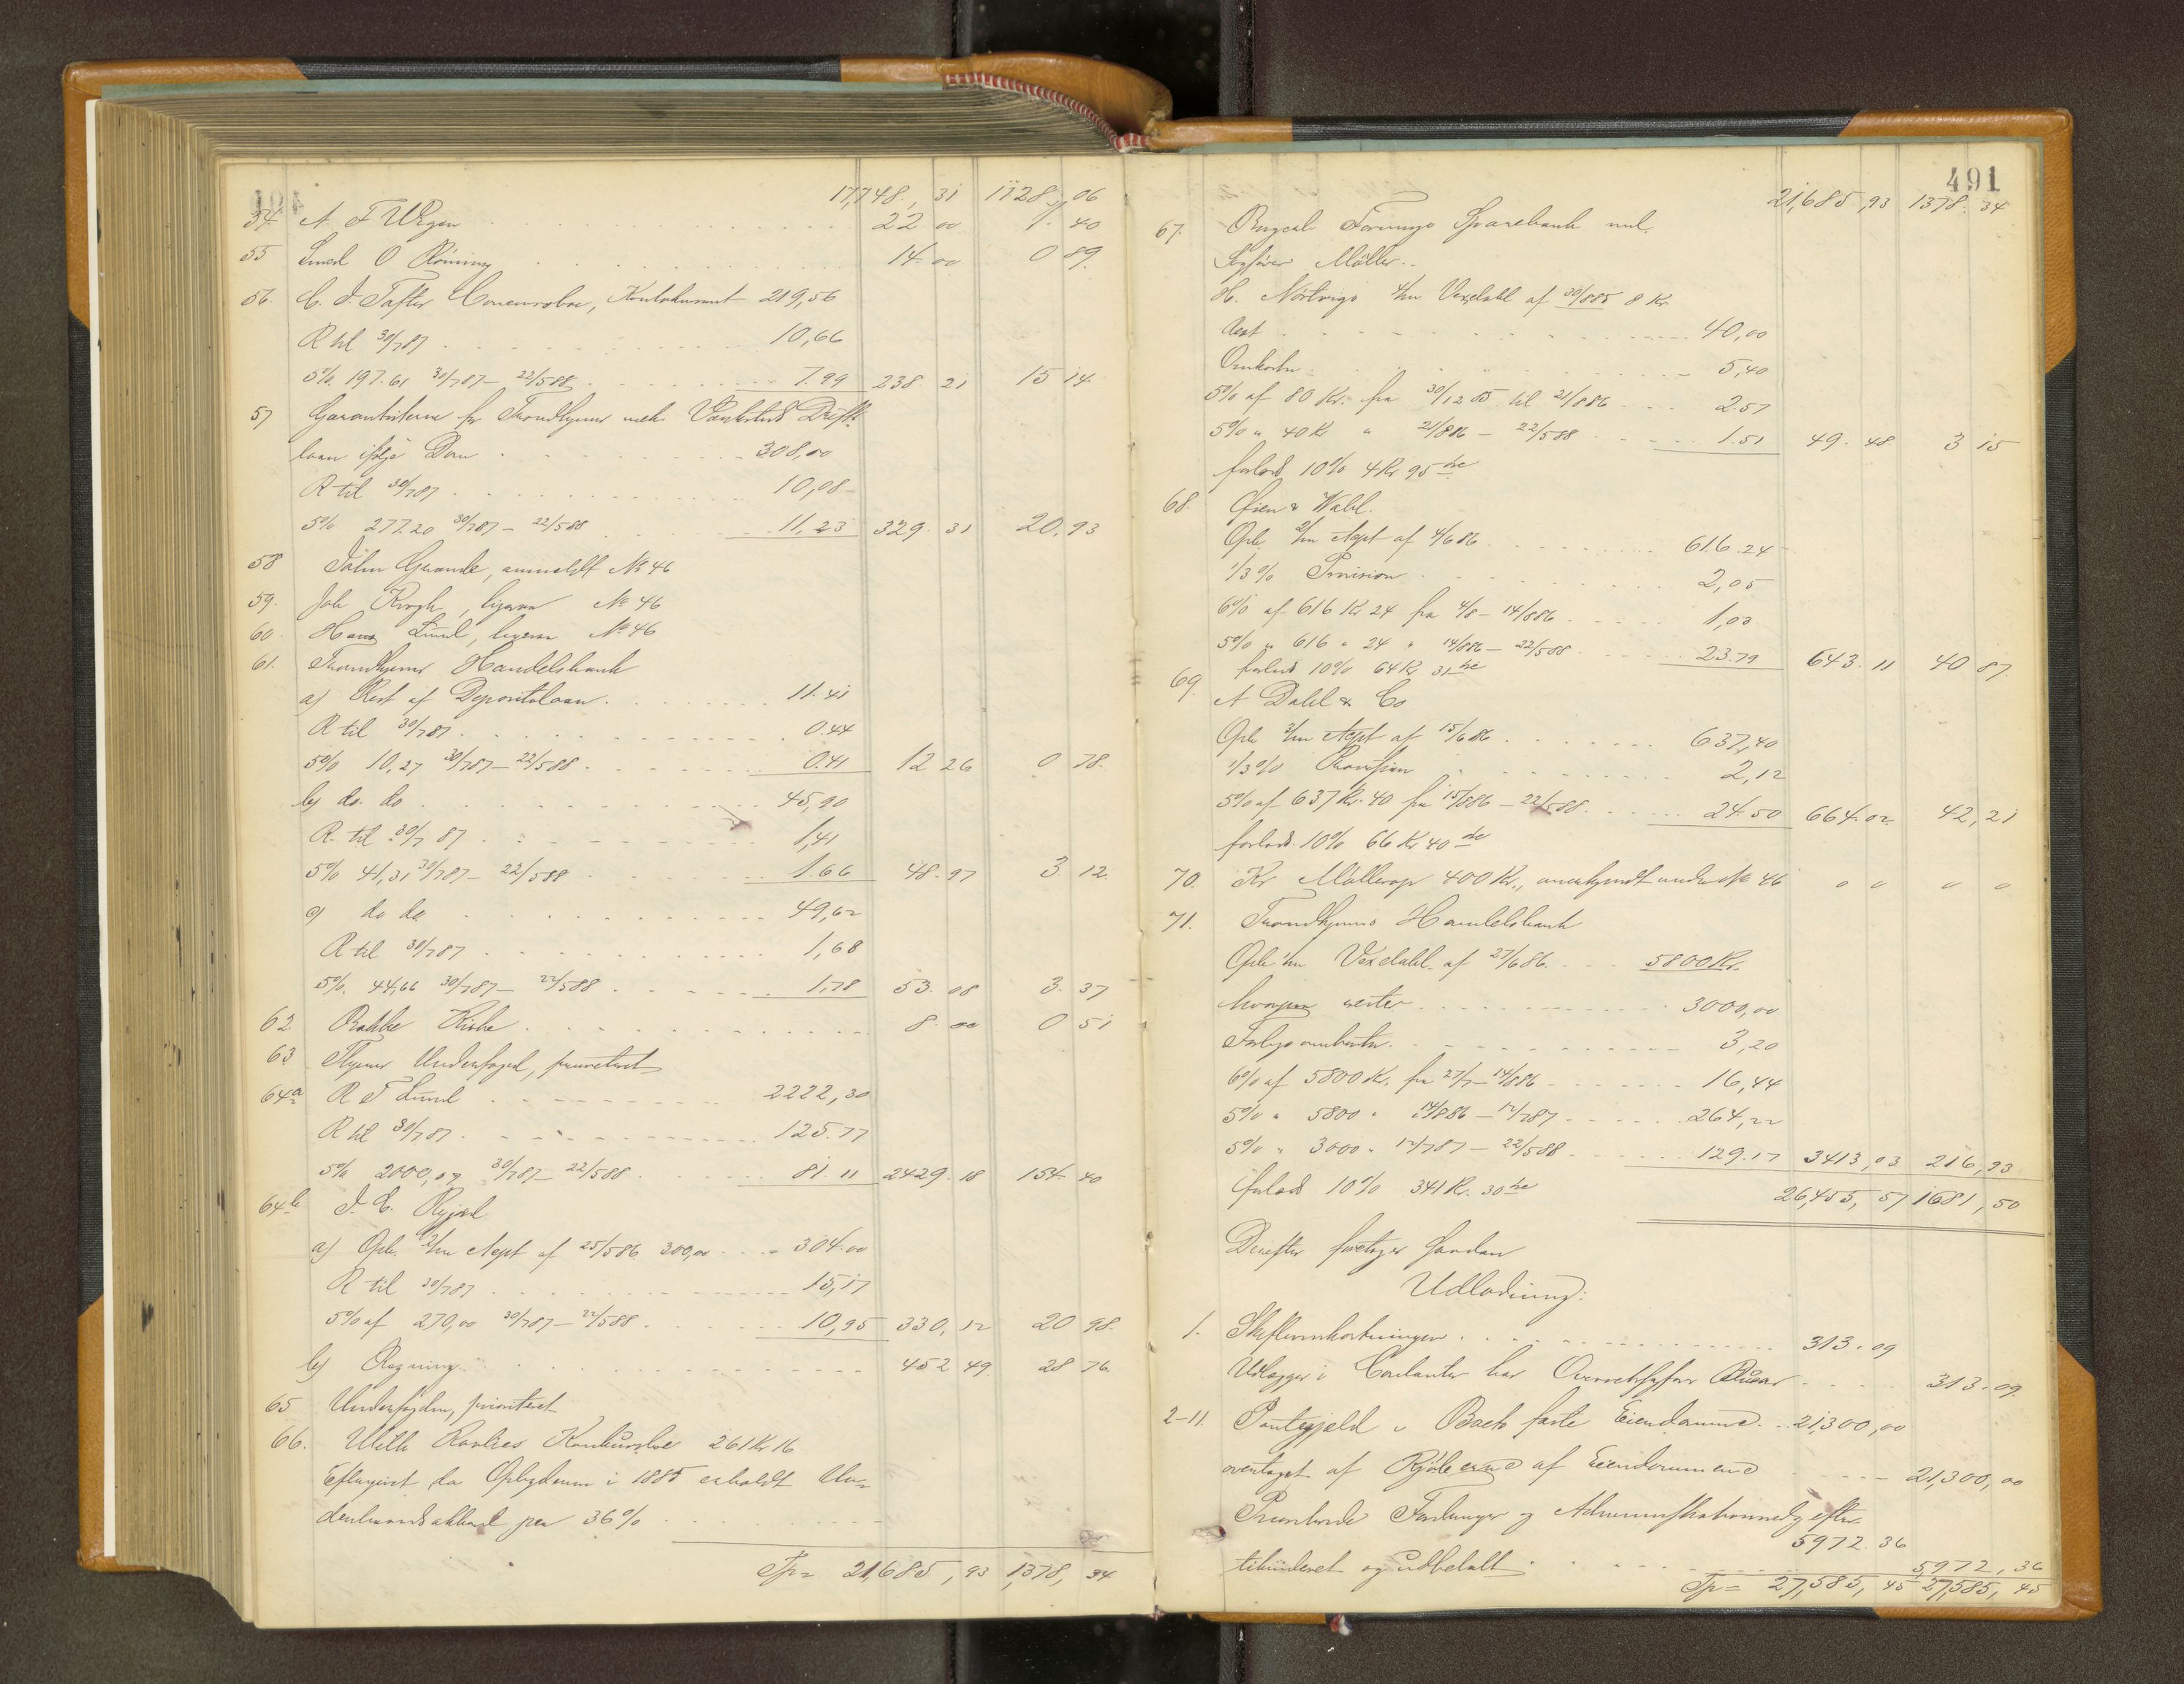 17,748, 31 1128, 06
54. A F Wigen 22 00 1. 40
55 Smed O Rönning 14. 00 0 89.
56. C. J. Tafter Concursbo, Kontokurant 219,56
R til 30/7 87 10,66
5% 197.61 30/7 87 – 22/5 88 7.99 238 21 15 14
57 Garantisterne for Trondhjems mek. Værksteds Drifts-
laan ifölge Dom 308,00
R til 30/7 87 10,08
5% 277.20 30/7 87 – 22/5 88 11,23 329. 31 20,93
58 John Grande, anmeldt No 46
59. Joh Krogh, ligesaa No 46
60. Hans Lund, ligesaa No 46
61. Trondhjems Handelsbank
a) Rest af Depositolaan 11.41
R til 30/7 87 0.44
5% 10,27 30/7 87 – 22/5 88 0.41 12 26 0 78.
b) do. do 45,90
R. til 30/7 87 1,41
5% 41,31 30/7 87 – 22/5 88 1.66 48.97 3 12.
c) do do 49,62
R til 30/7 87 1,68
5%. 44,66 30/7 87 – 22/5 88 1.78 53. 08 3. 37
62. Bakke Kirke 8. 00 0 51
63 Byens Underfoged, prioriteret
64a R F Lund 2222,30
R til 30/7 87 125.77
5% 2000,07 30/7 87 – 22/5 88 81. 11 2429. 18 154. 40
64b J. C.
a) Opr. 2/m Acpt af 25/5 86. 300,00 304.00
R til 30/7 87 15,17
5% af 270,00 30/7 87 – 22/5 88 10,95 330,12 20 98.
b) Regning 452 49. 28 76.
65 Underfogden, prioriteret
66. Konkursbo 261 Kr 16
Eftergivet da i 1885 erholdt Un-
derhaandsakkord per 36%
Tp= 21,685, 93 1,378, 34
491
21,685,93 1378. 34
67. Sparebank ved.
Sagförer Möller.
H. 4/m Vexelobl af 30/8 85 8 Kr.
Rest 40,00
Omkostn. 5,40
5% af 80 Kr. fra 30/12 85 til 21/8 86 2.57
5% „ 40 Kr „ 21/8 86 – 22/5 88 1.51 49. 48 3 15
forlods 10% 4 Kr 95 öre
68. Öien & Wahl.
Opr 2/m Acpt af 4/6 86 616.24
1/3% Provision 2,05
6% af 616 Kr 24 fra 4/8 – 14/8 86 1,03
5% „ 616 „ 24 „ 14/8 86 – 22/5 88 23.79 643. 11 40 87.
forlods 10% 64 Kr 31 öre
69. A Dahl & Co
Opr 2/m Acpt af 15/6 86 637,40
1/3% Provision 2,12
5% af 637 Kr. 40 fra 15/8 86 – 22/5 88 24.50 664.02 42,21
forlods 10% 66 Kr 40 öre
70. Kr Möllerop 400 Kr., anerkjendt under No 46 „ „ „ „
71. Trondhjems Handelsbank
Opr /m Vexelobl. af 27/6 86 5800 Kr.
hvorpaa rester 3000,00
Forlygsomkostn. 3,20
6% af 5800 Kr. fra 27/7 – 14/8 86 16,44
5% „ 5800 „ 14/8 86 – 12/7 87 264,22
5% „ 3000 „ 12/7 87 – 22/5 88 129.17 3413,03 216,93
forlods 10% 341 Kr. 30 öre 26,455, 57 1681, 50
Derefter foretoges saadan
Udlodning:
1. Skifteomkostninger 313.09
Udlægges i Contanter hos 313.09.
2-11. Pantegjeld i Boets faste Eiendomme 21,300,00
overtaget af Kjöberne af Eiendommene 21,300,00
Fordringer og
5972.36
tilkiendet og udbetalt 5,972,36
Tp= 27,585, 45 27,585, 45